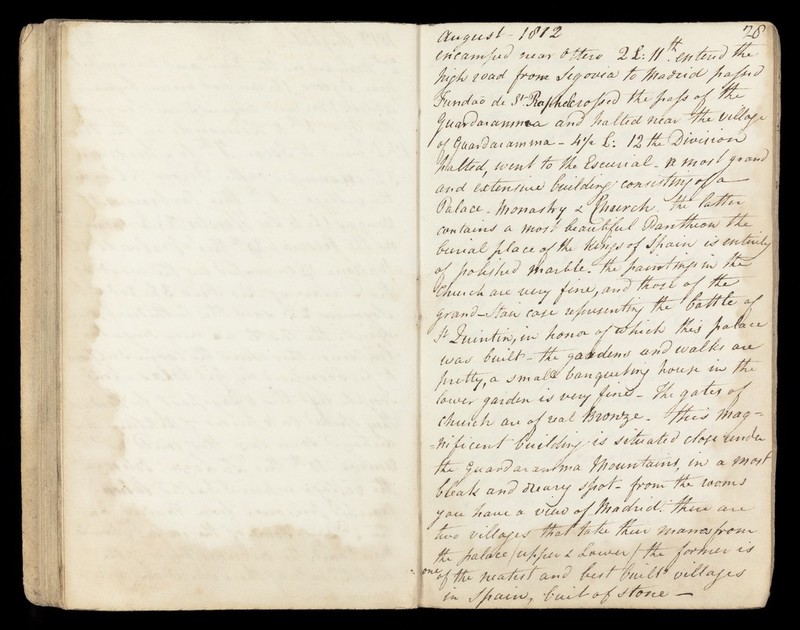 August - 1812 28
encamped near Otero 2 L: 11th. entered the
high road from Segovia to Madrid passed
Fundaō de St. Raphel crossed the pass of the
Guardaramma and halted near the village
of Guardaramma - 4½ L: 12 the Division
halted, went to the Escurial - a most grand
and extensive building consisting of a
Palace - Monastry & Church. the latter
contains a most beautiful Pantheon the
burial place of the Kings of Spain is entirely
of polished marble. the paintings in the
Church are very fine, and those of the
grand - Stair case representing the battle of
St Quintin, in honor of which this palace
was built - the gardens and walks are
pretty, a small banqueting house in the
lower garden is very fine - The gates of
church are of real Bronze - this mag=
=nificent building is situated close under
the Guardaramma Mountains, in a most
bleak and dreary spot - from the rooms
you have a view of Madrid. there are
two villages that take their names from
the palace (upper & Lower) the former is
one of the neatest and best built villages
in Spain, built of stone —